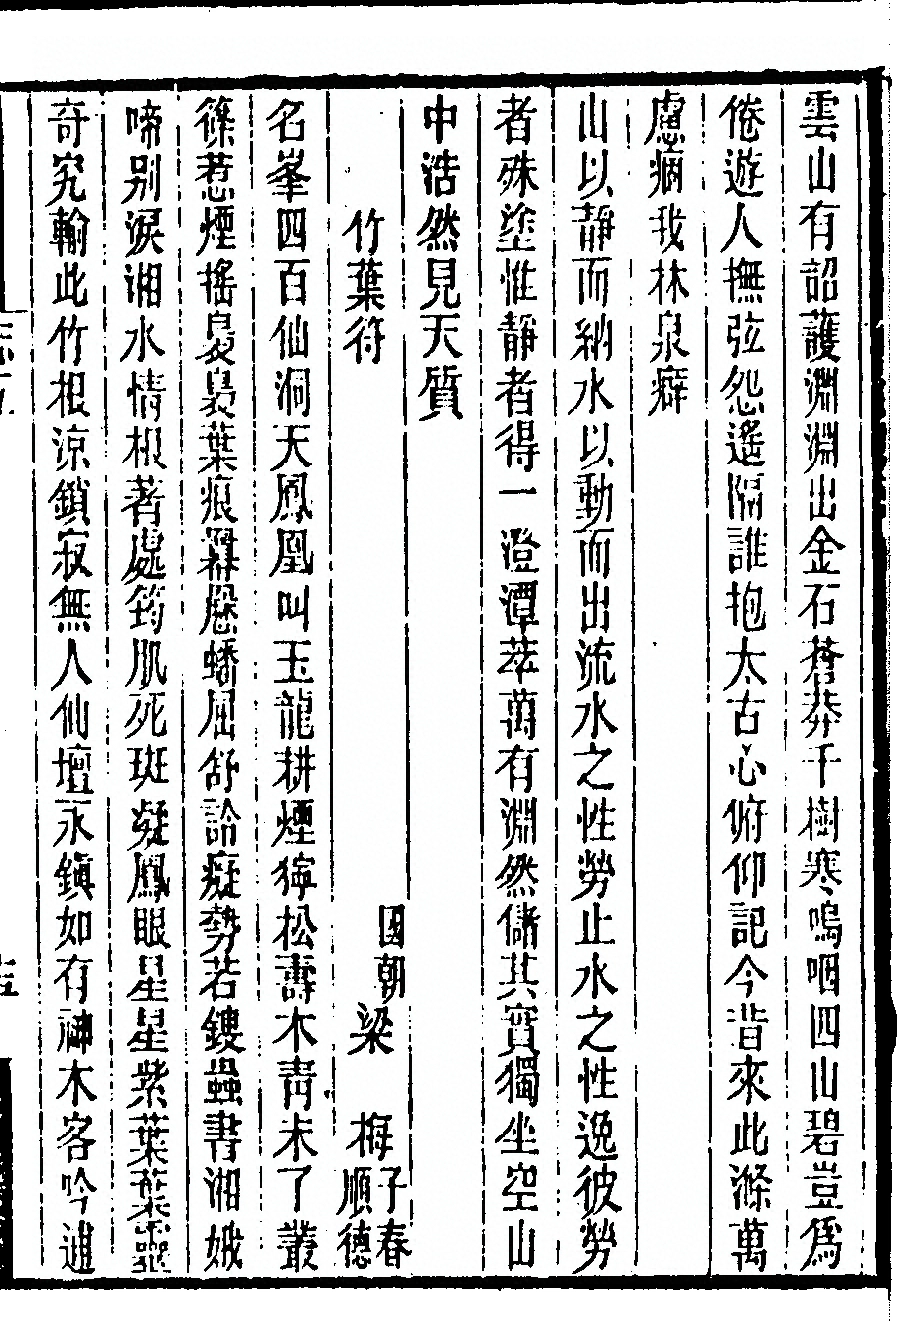 雲山有詔護淵淵出金石蒼莽千樹寒嗚咽四山碧豈爲
倦遊人撫弦怨遙隔誰抱太古心俯仰記今昔來此滌萬
慮痼我林泉癖
山以靜而納水以動而出流水之性勞止水之性逸彼勞
者殊塗惟靜者得一澄潭萃萬有淵然儲其實獨坐空山
中浩然見天質
竹葉符 國朝梁 梅 子春順德
名峯四百仙洞天鳳凰叫玉龍耕煙獰松壽木靑未了叢
篠惹煙搖裊裊葉痕羃蟠屈舒詅癡勢若鏤蟲書湘娥
啼別淚湘水情根著處筠肌死斑凝鳳眼星星紫葉葉靈
奇究輸此竹根涼鎖寂無人仙壇永鎭如有神木客吟逋